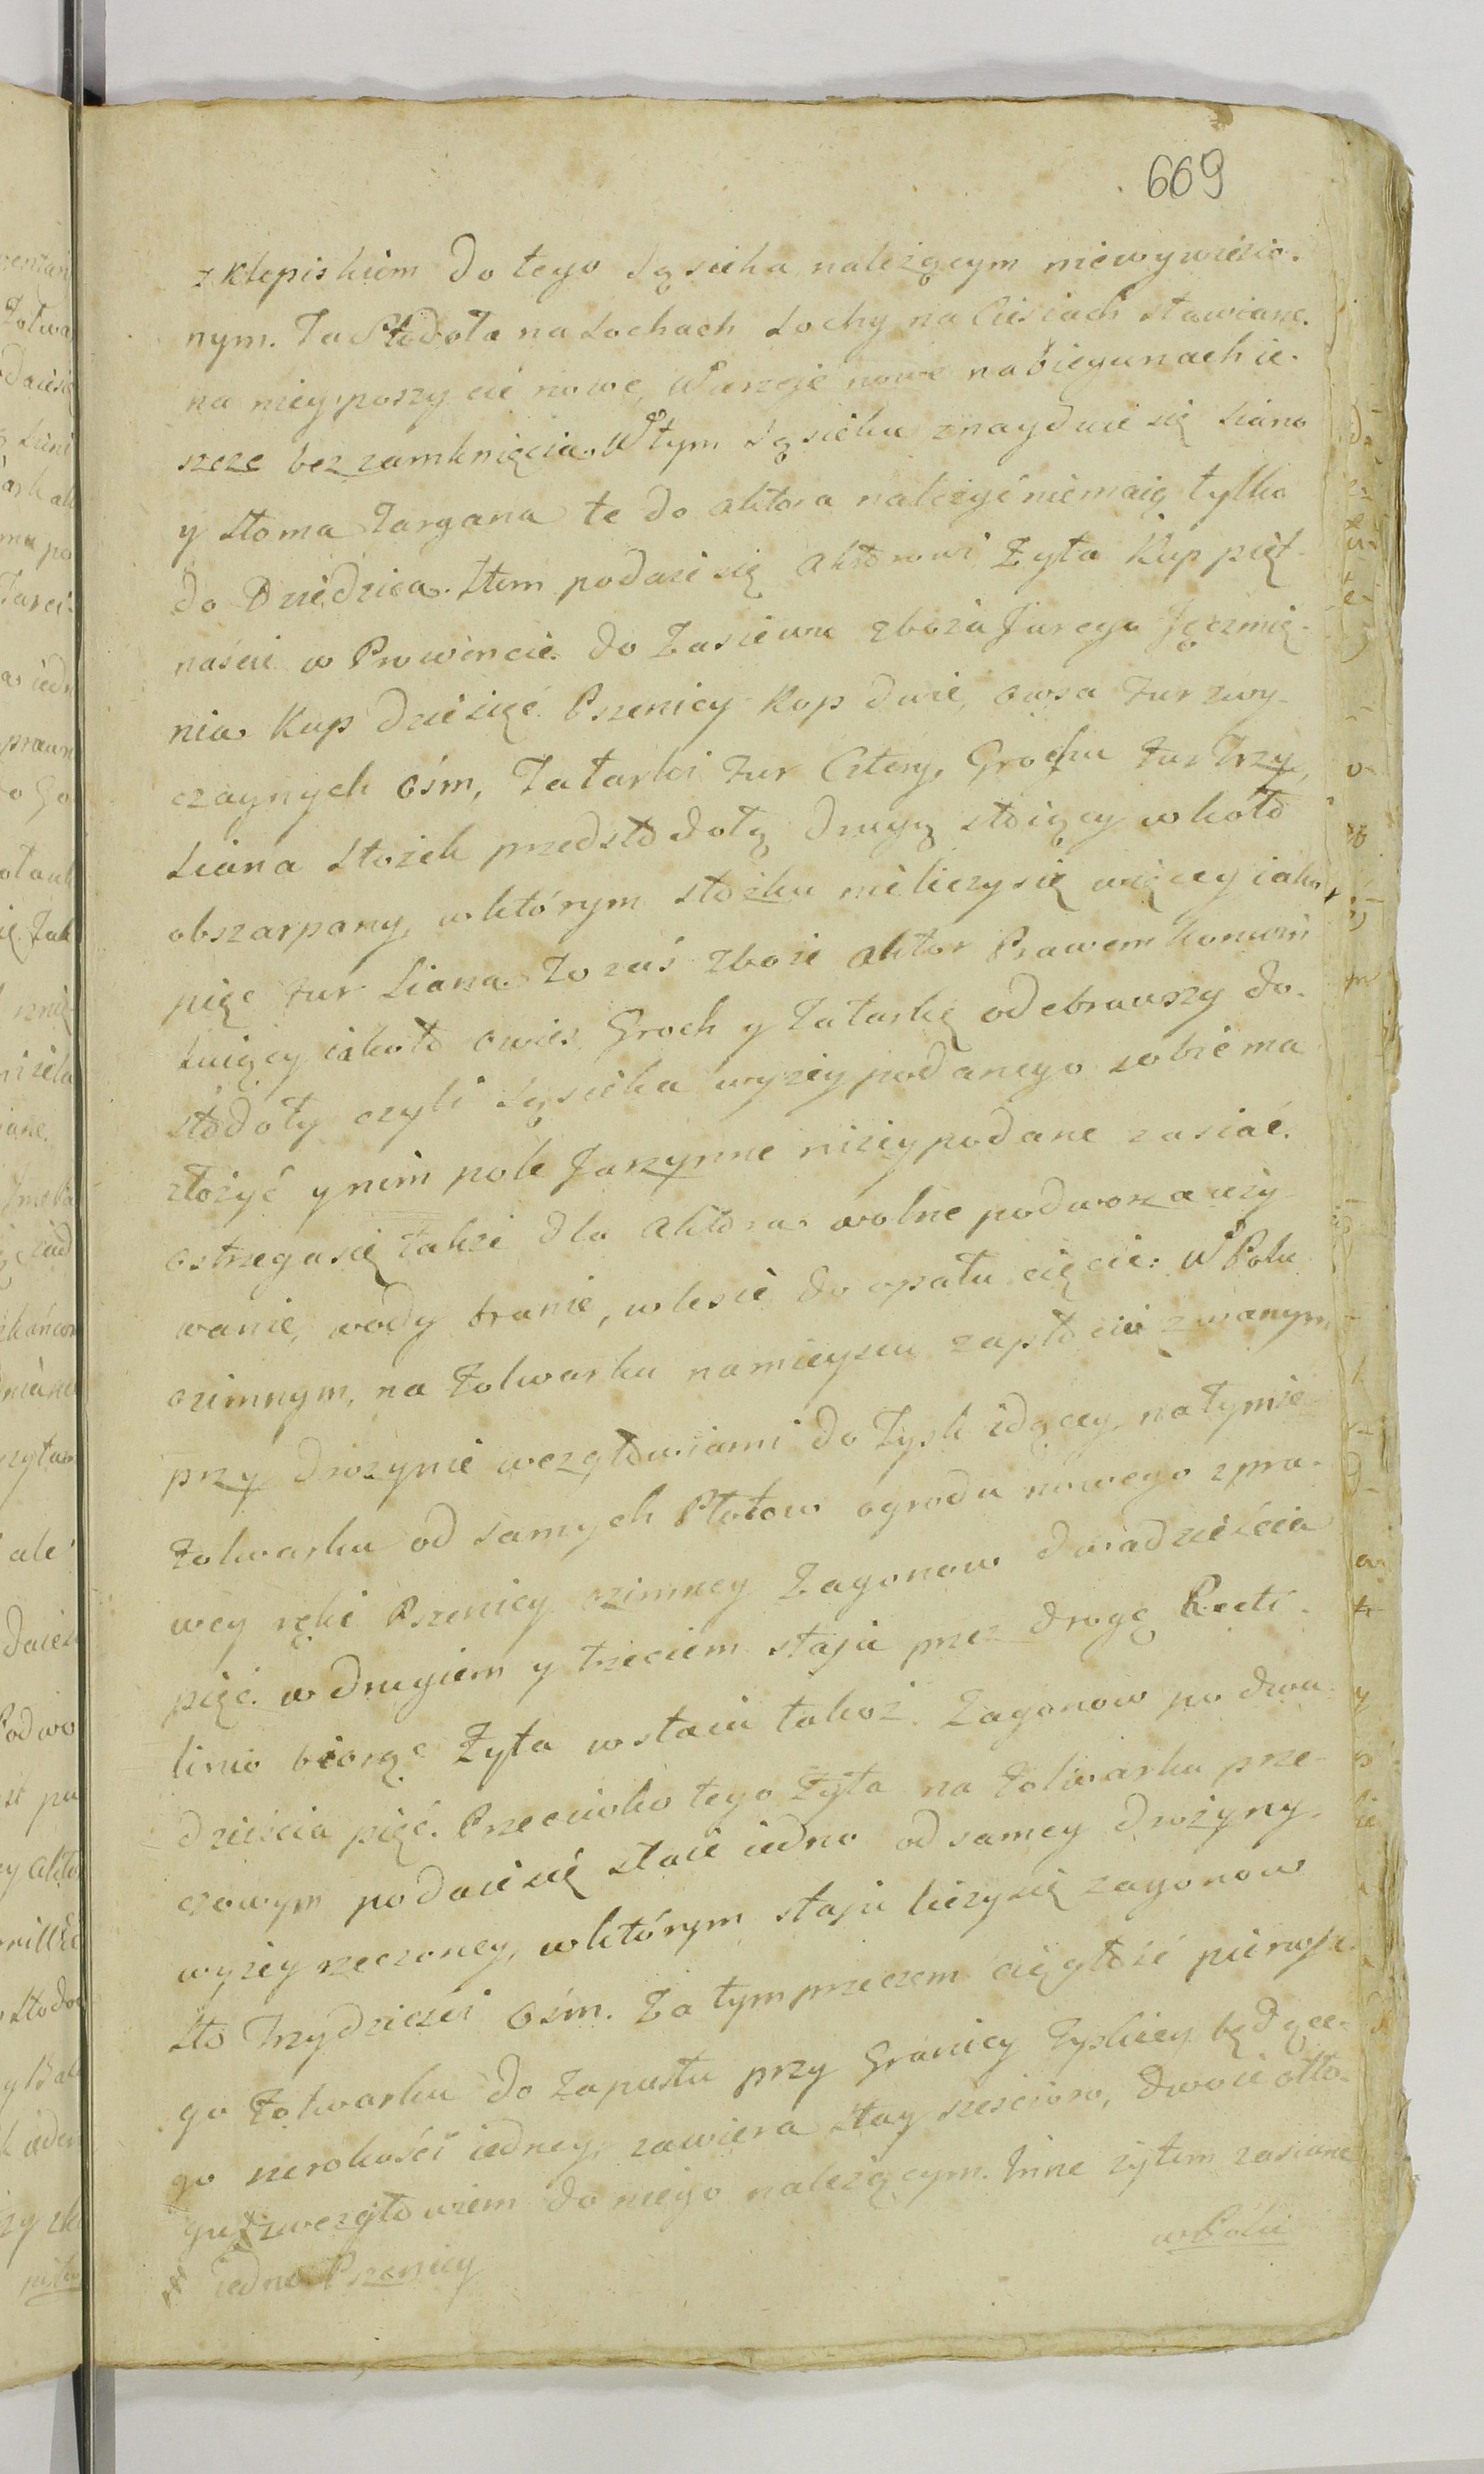 669
z Klepiskiem do tego Sąsieka należącym niewywiezio-
nym. Ta Stodoła na Sochach Sochy na Ciesiach stawiane.
na niey poszycie nowe, Wierzeje nowe na biegunach ie-
szcze bez zamknięcia. W tym Sąsieku znayduie się Siano
y Słoma Targana te do aktora należyć niemaią tylko
do Dziedzica. Item podaie się aktorowi Żyta Kup pięt-
naście w Prowincie. do Zasiewu zboża Jarego Jęczmie-
nia Kup dziesięć Pszenicy Kop dwie, owsa Fur zwy-
czaynych ośm, Tatarki Fur Cztery, Grochu Fur Trzy,
Siana Stożek przed stodołą drugą stoiący wkoło
obszarpany, w którym stożku nieliczy się więcey iako
pięc Fur Siana. To zaś zboże aktor Prawem Konwin
kuiący iakoto owies Groch y Tatarkę odebrawszy do
stodoły czyli Sąsieka wyżey podanego sobie ma
złożyć y nim pole Jarzynne niżey podane zasiać.
ostrzega się także dla aktora wolne podworza uży-
wanie, wody branie, w lesie do opału cięcie: W Polu
ozimnym, na Folwarku na mieyscu zapłocie zwanym
przy drożynie wezgłowiami do Łysk idącey, na tymże
Folwarku od samych Płotow ogrodu nowego z pra-
wey ręki Pszenicy ozimney Zagonow dwadzieścia
pięć. w drugiem y trzeciem staju przez drogę Recti-
linio biorąc Żyta w staiu takoż Zagonow po dwa-
dzieścia pięć. Przeciwko tego Żyta na Folwarku prze-
czowym podaie się staie iedno od samey drożyny
wyżey rzeczoney, w którym staju liczy się zagonow
Sto Trzydzieści Ośm. Za tym przeczem ciągłość pierwsze-
go Folwarku do Zapustu przy Granicy Łyskiey będące-
go szerokości iedney, zawiera stay sześcioro, dwoie odło-
giu z wezgłowiem do niego należącym. Inne żytem zasiane
iedno Pszenicy
w Polu